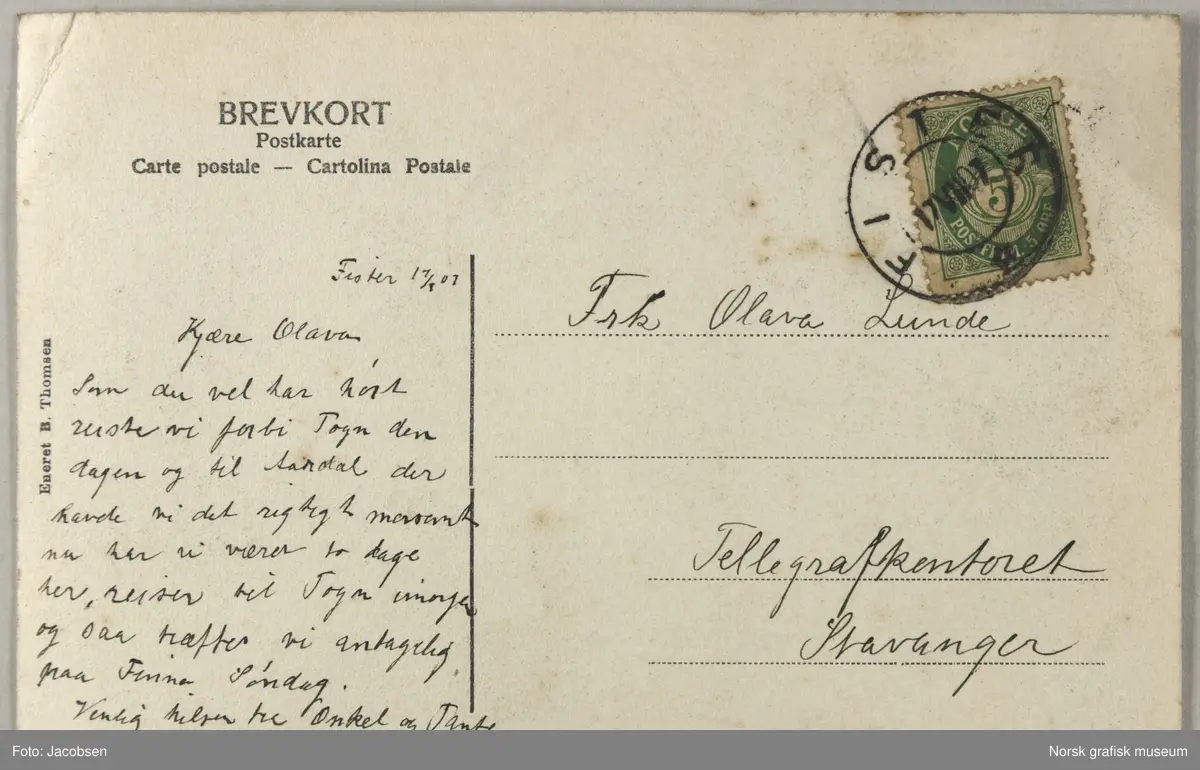 BREVKORT
Postkarte
Carte postale — Cartolina Postale
FISTER
17 VIII 07
NORGE
5
POSTFRIM. 5 ØRE
Eneret B. Thomsen
Fister 17/8 07
Kjære Olava
Som du vel har hört
reiste vi forbi Togn den
dagen og til Aardal der
havde vi det rigtigt morsomt
nu har vi været to dage
her, reiser til Togn imorgen
og saa træffes vi antagelig
paa Finna Söndag.
Venlig hilsen til Onkel og Tante
Frk Olava Lunde
Tellegrafkontoret
Stavanger
Foto: Jacobsen
Norsk grafisk museum